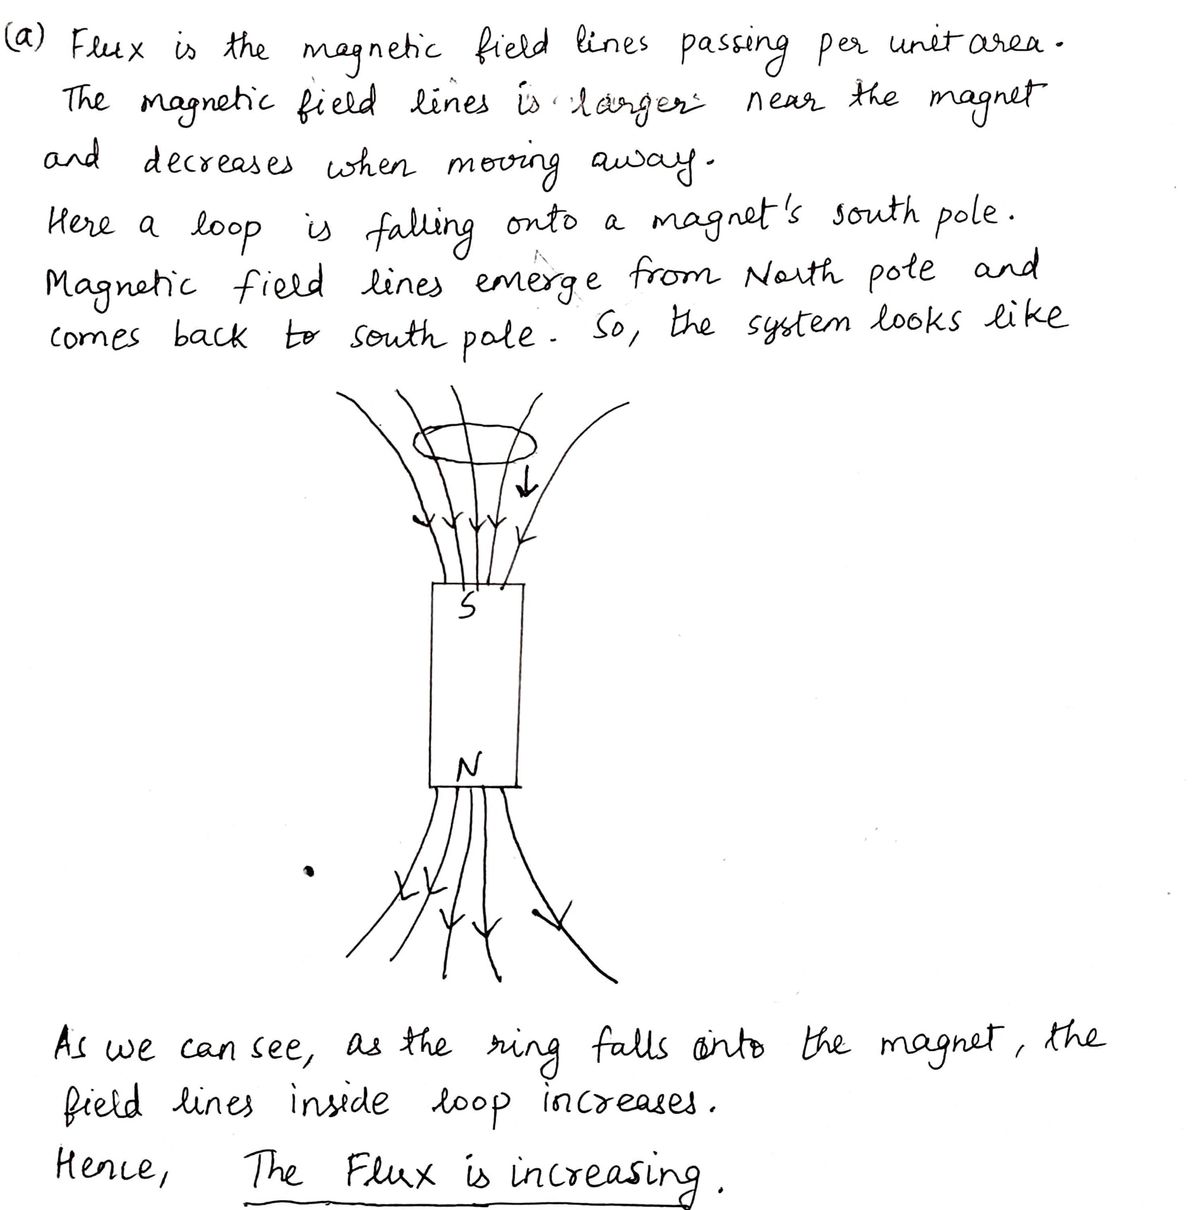 (a) Flux is the magnetic field lines passing per unit area.
The magnetic field lines is larger near the magnet
and decreases when moving away.
Here a loop is falling onto a magnet's south pole.
Magnetic field lines emerge from North pole and
comes back to south pole. So, the system looks like
S
N
As we can see, as the ring falls onto the magnet, the
field lines inside loop increases.
Hence, The Flux is increasing.